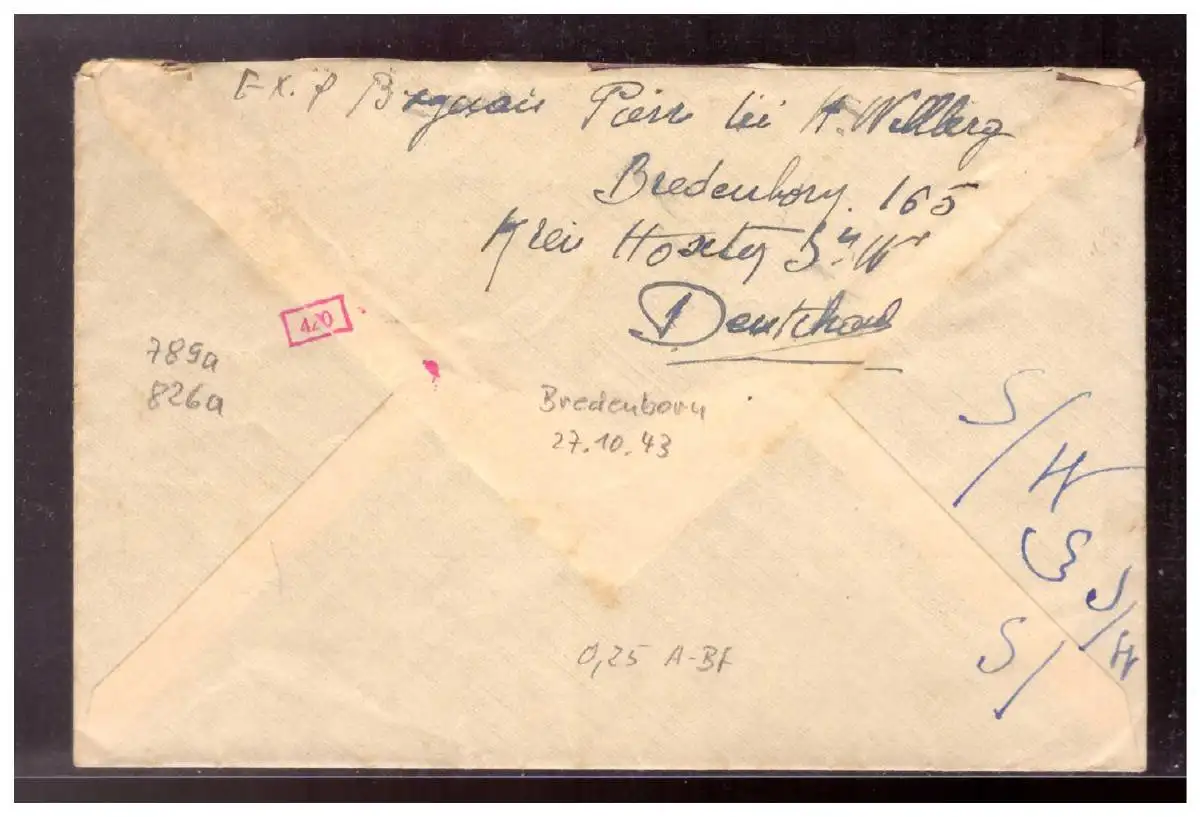 Exp Pierr bei H. Wellberg
Bredenborn. 165
Kreis Hoxter
Deutchand
420
789a
826a
Bredenborn
27.10.43
S/W
S
S/W
S/
0,25 A-BF